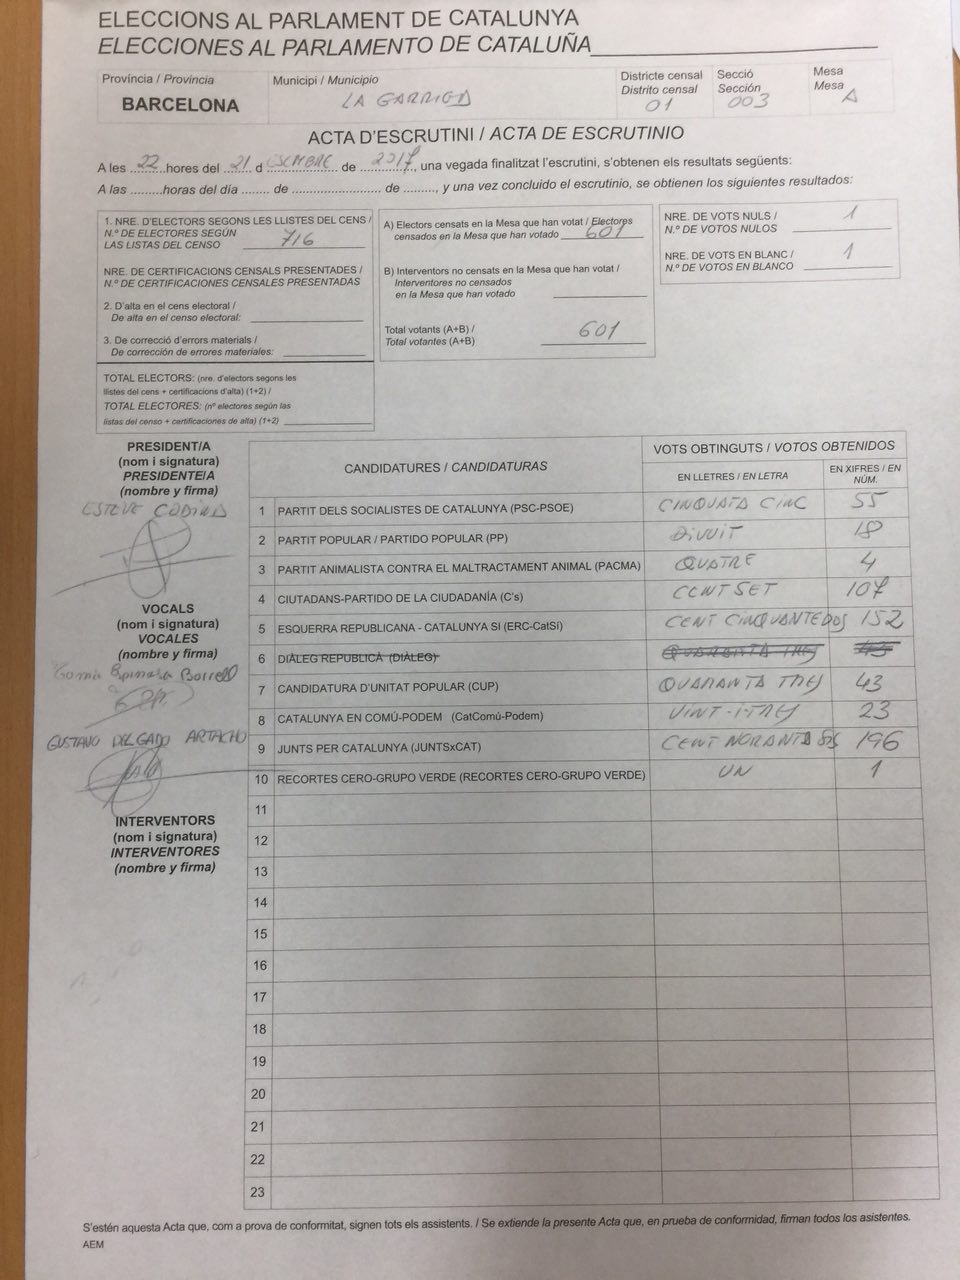 ELECCIONS AL PARLAMENT DE CATALUNYA
ELECCIONES AL PARLAMENTO DE CATALUÑA
Província / Provincia
BARCELONA
Municipi / Municipio
LA GARRIGA
Districte censal
Distrito censal
01
Secció
Sección
003
Mesa
Mesa
A
ACTA D'ESCRUTINI / ACTA DE ESCRUTINIO
A les 22 hores del 21 d ESEMBRE de 2017, una vegada finalitzat l'escrutini, s'obtenen els resultats següents:
A las .........horas del día ....... de ....................... de ........, y una vez concluido el escrutinio, se obtienen los siguientes resultados:
1. NRE. D'ELECTORS SEGONS LES LLISTES DEL CENS /
N.º DE ELECTORES SEGÚN
LAS LISTAS DEL CENSO 716
NRE. DE CERTIFICACIONS CENSALS PRESENTADES /
N.º DE CERTIFICACIONES CENSALES PRESENTADAS
2. D'alta en el cens electoral /
De alta en el censo electoral:
3. De correcció d'errors materials /
De corrección de errores materiales:
TOTAL ELECTORS: (nre. d'electors segons les
llistes del cens + certificacions d'alta) (1+2) /
TOTAL ELECTORES: (nº electores según las
listas del censo + certificaciones de alta) (1+2)
A) Electors censats en la Mesa que han votat / Electores
censados en la Mesa que han votado 601
B) Interventors no censats en la Mesa que han votat /
Interventores no censados
en la Mesa que han votado
Total votants (A+B) /
Total votantes (A+B) 601
NRE. DE VOTS NULS /
N.º DE VOTOS NULOS 1
NRE. DE VOTS EN BLANC /
N.º DE VOTOS EN BLANCO 1
PRESIDENT/A
(nom i signatura)
PRESIDENTE/A
(nombre y firma)
ESTEVE CODINA
VOCALS
(nom i signatura)
VOCALES
(nombre y firma)
Espinosa Borrell
GUSTAVO DELGADO ARTACHO
INTERVENTORS
(nom i signatura)
INTERVENTORES
(nombre y firma)
CANDIDATURES / CANDIDATURAS
VOTS OBTINGUTS / VOTOS OBTENIDOS
EN LLETRES / EN LETRA
EN XIFRES / EN
NÚM.
1 PARTIT DELS SOCIALISTES DE CATALUNYA (PSC-PSOE) CINQUATA CINC 55
2 PARTIT POPULAR / PARTIDO POPULAR (PP) DIVUIT 18
3 PARTIT ANIMALISTA CONTRA EL MALTRACTAMENT ANIMAL (PACMA) QUATRE 4
4 CIUTADANS-PARTIDO DE LA CIUDADANÍA (C's) CENT SET 107
5 ESQUERRA REPUBLICANA - CATALUNYA SÍ (ERC-CatSí) CENT CINQUANTEDOS 152
6 DIÀLEG REPUBLICÀ (DIÀLEG) QUARANTA TRES 43
7 CANDIDATURA D'UNITAT POPULAR (CUP) QUARANTA TRES 43
8 CATALUNYA EN COMÚ-PODEM (CatComú-Podem) VINT-I-TRES 23
9 JUNTS PER CATALUNYA (JUNTSxCAT) CENT NORANTA SIS 196
10 RECORTES CERO-GRUPO VERDE (RECORTES CERO-GRUPO VERDE) UN 1
11
12
13
14
15
16
17
18
19
20
21
22
23
S'estén aquesta Acta que, com a prova de conformitat, signen tots els assistents. / Se extiende la presente Acta que, en prueba de conformidad, firman todos los asistentes.
AEM